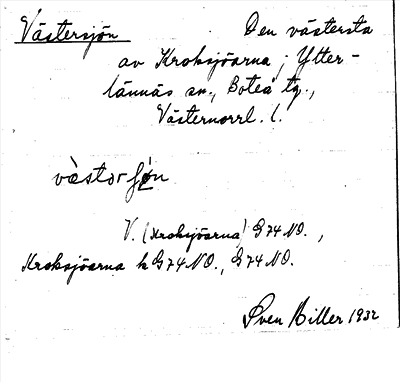 Västersjön Den västersta
av Kroksjöarna; Ytter-
lännäs sn., Boteå tg.,
Västernorrl. l.
V. (Kroksjöarna) G74NO.,
Kroksjöarna k G74NO., G74NO.
Sven Hiller 1932